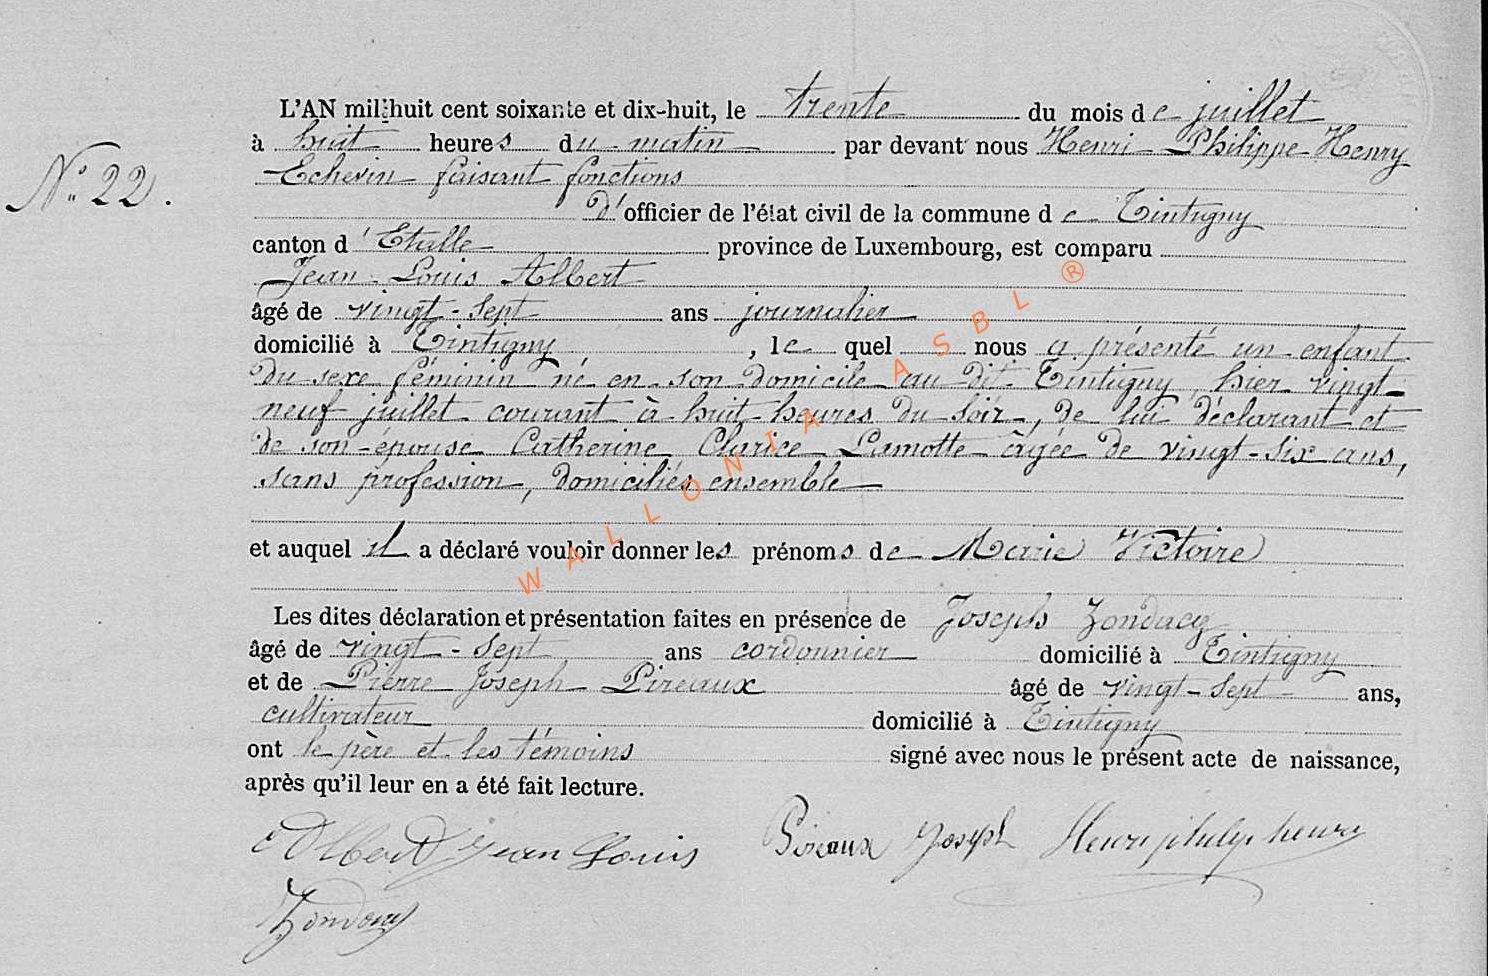 L'AN mil huit cent soixante et dix-huit, le trente du mois de juillet
à huit heures du matin par devant nous Henri Philippe Henry
N° 22.
Echevin faisant fonctions
d'officier de l'état civil de la commune de Tintigny
canton d'Etalle province de Luxembourg, est comparu
Jean Louis Albert
âgé de vingt-sept ans journalier
domicilié à Tintigny, lequel nous a présenté un enfant
du sexe féminin né en son domicile au dit Tintigny hier vingt
neuf juillet courant à huit heures du soir, de lui déclarant et
de son épouse Catherine Clarice Lamotte âgée de vingt-six ans,
sans profession, domiciliés ensemble
et auquel il a déclaré vouloir donner les prénoms de Marie Victoire
Les dites déclaration et présentation faites en présence de Joseph Zondacq
âgé de vingt-sept ans cordonnier domicilié à Tintigny
et de Pierre Joseph Pireaux âgé de vingt-sept ans,
cultivateur domicilié à Tintigny
ont le père et les témoins signé avec nous le présent acte de naissance,
après qu'il leur en a été fait lecture.
Albert Jean Louis Pireaux Joseph Henri philip henry
WALLONIA ASBL ®